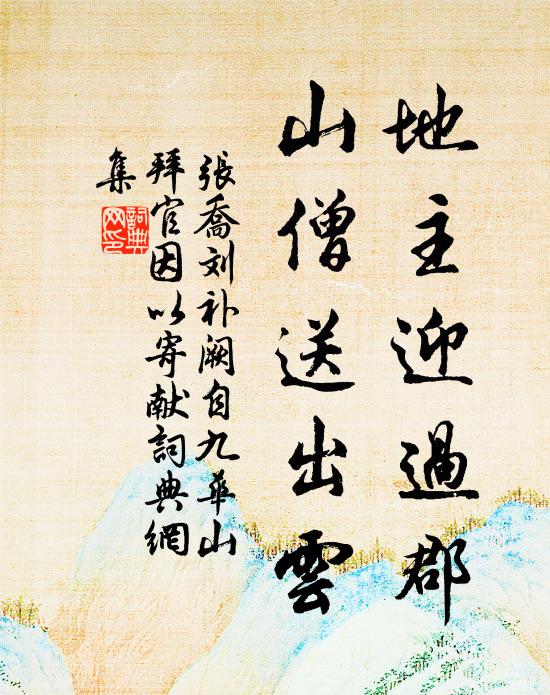 地主迎過郡
山僧送出雲
張喬刘补阙自九華山
拜官因以寄献詞典網
集
詞典网印